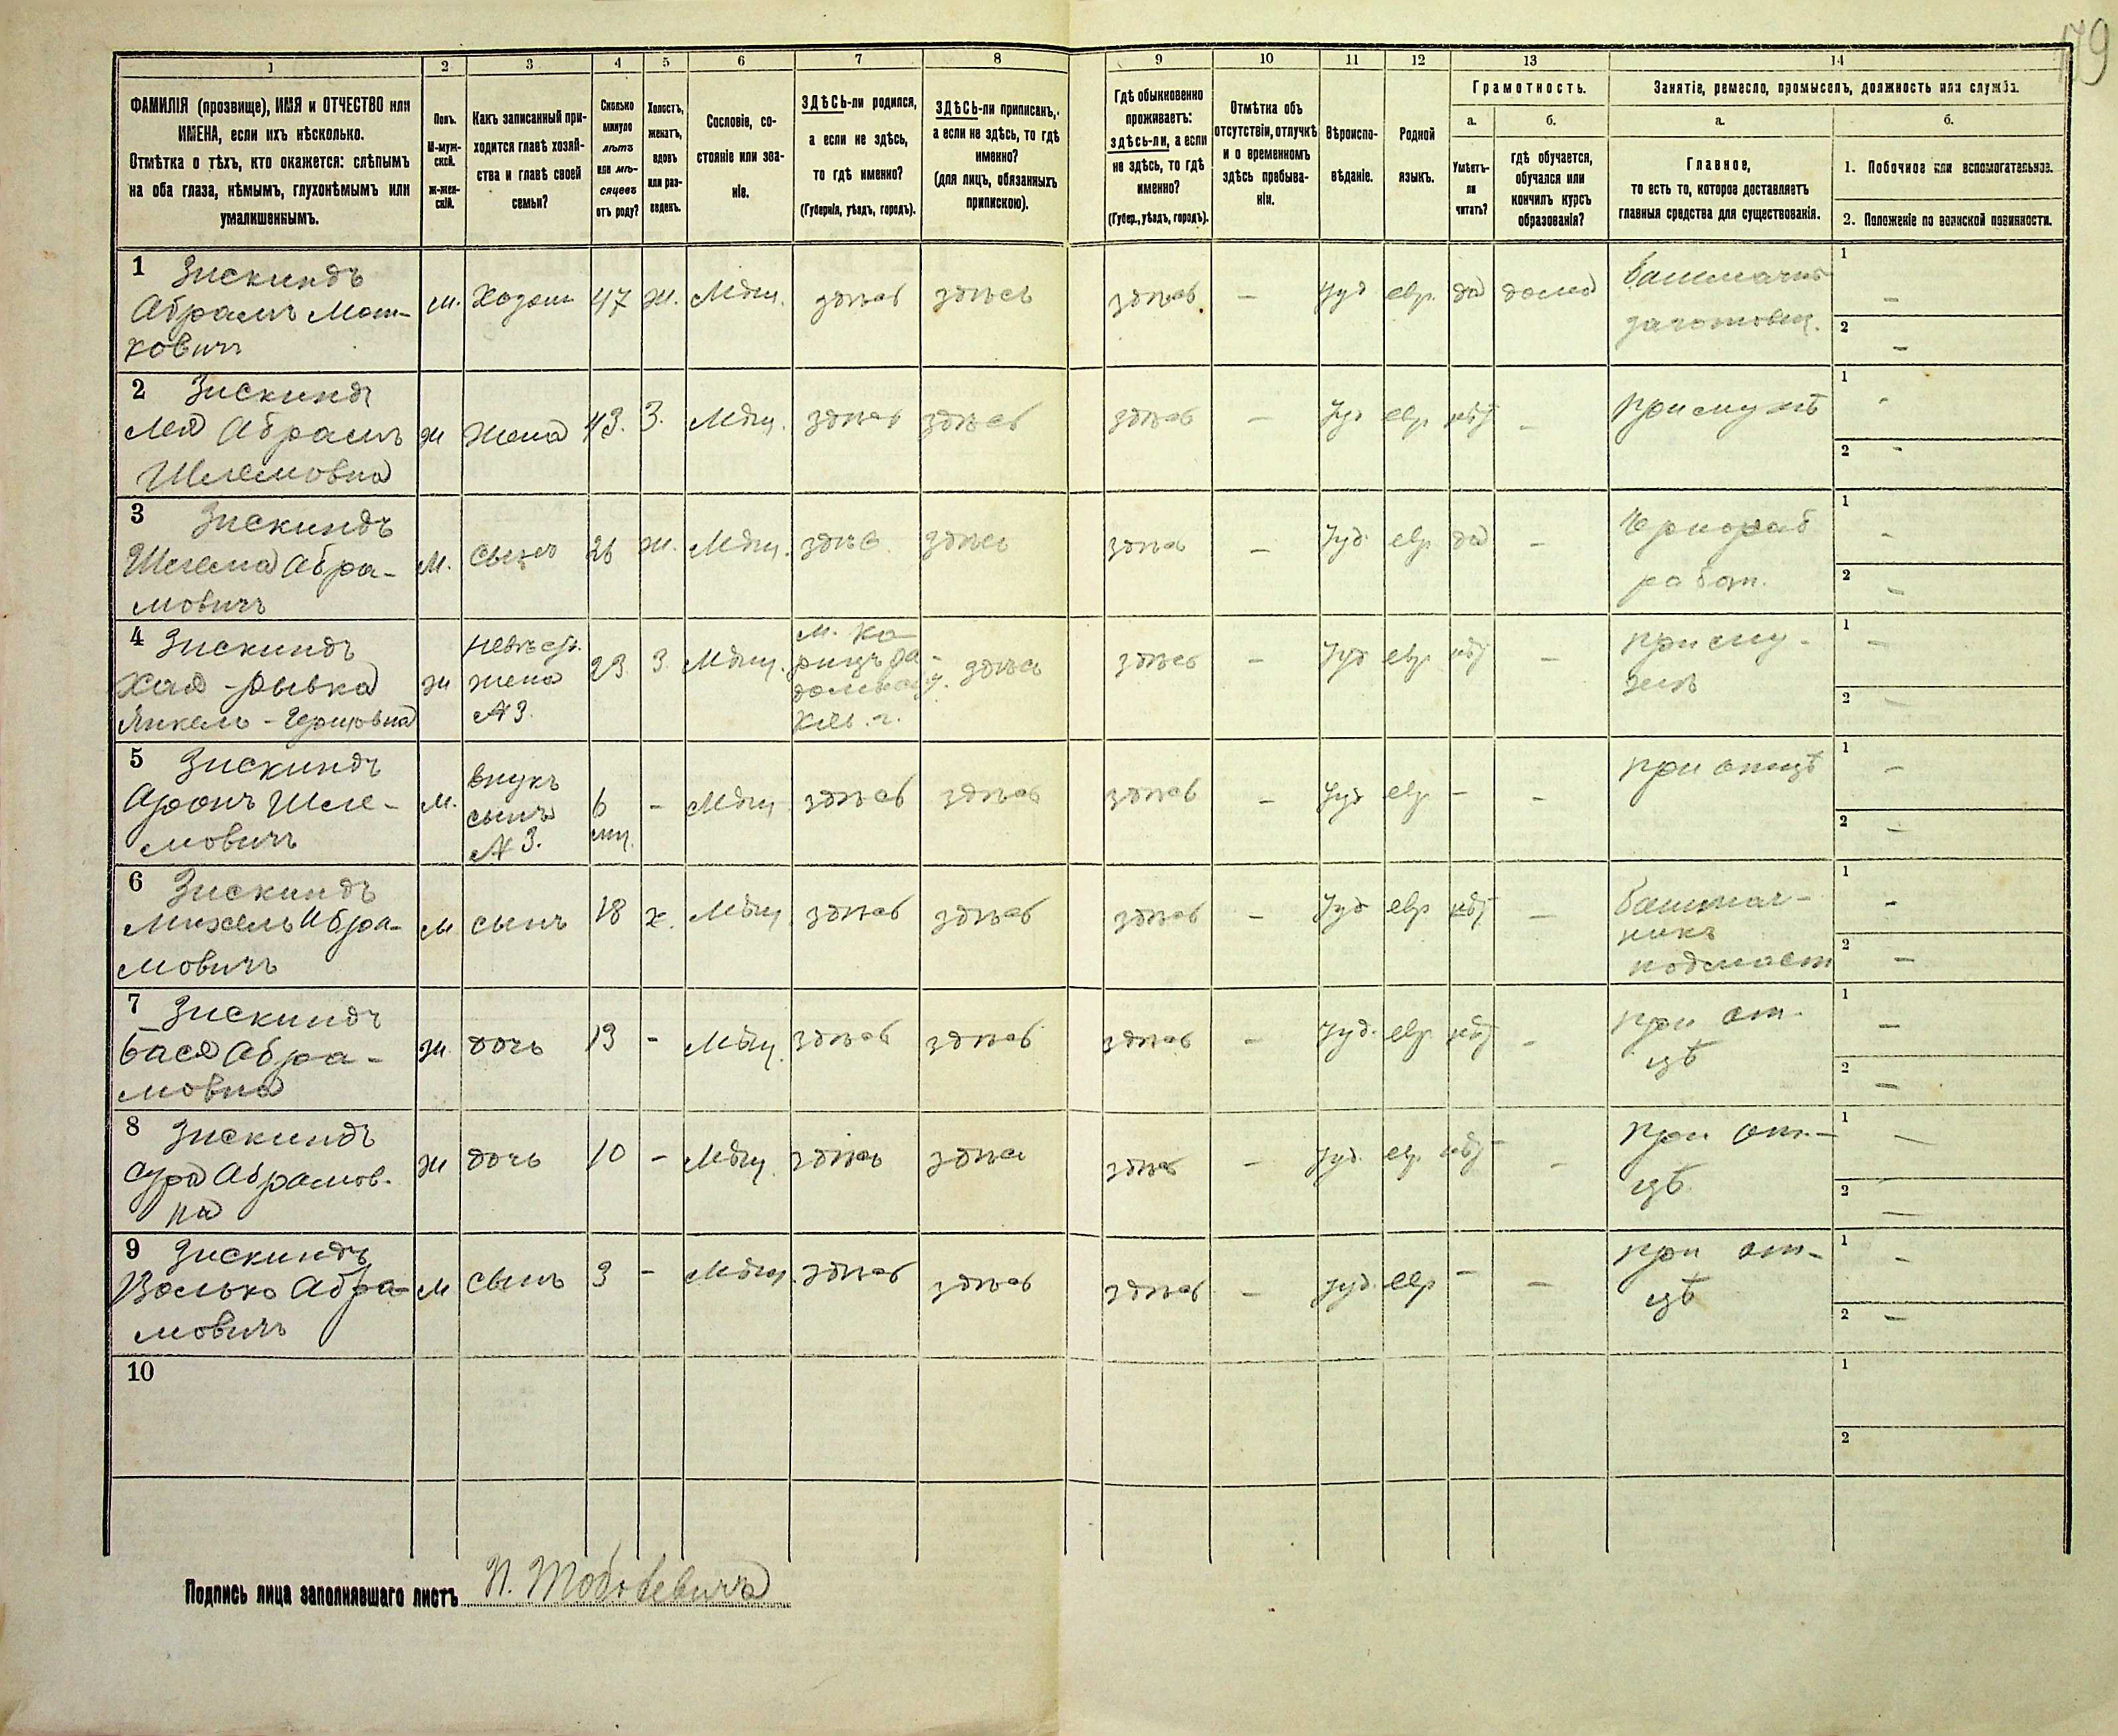 179
1 2 3 4 5 6 7 8 9 10 11 12 13 14
ФАМИЛІЯ (прозвище), ИМЯ и ОТЧЕСТВО или
ИМЕНА, если ихъ нѣсколько.
Отмѣтка о тѣхъ, кто окажется: слѣпымъ
на оба глаза, нѣмымъ, глухонѣмымъ или
умалишеннымъ.
Полъ.
М-муж-
ской.
Ж-жен-
скій.
Какъ записанный при-
ходится главѣ хозяй-
ства и главѣ своей
семьи?
Сколько
минуло
лѣтъ
или мѣ-
сяцевъ
отъ роду?
Холостъ,
женатъ,
вдовъ
или раз-
веденъ.
Сословіе, со-
стояніе или зва-
ніе.
ЗДѢСЬ-ли родился,
а если не здѣсь,
то гдѣ именно?
(Губернія, уѣздъ, городъ).
ЗДѢСЬ-ли приписанъ,
а если не здѣсь, то гдѣ
именно?
(для лицъ, обязанныхъ
припискою).
Гдѣ обыкновенно
проживаетъ:
здѣсь-ли, а если
не здѣсь, то гдѣ
именно?
(Губер., уѣздъ, городъ).
Отмѣтка объ
отсутствіи, отлучкѣ
и о временномъ
здѣсь пребыва-
ніи.
Вѣроиспо-
вѣданіе.
Родной
языкъ.
Грамотность.
а.
Умѣетъ-
ли
читать?
б.
гдѣ обучается,
обучался или
кончилъ курсъ
образованія?
Занятіе, ремесло, промыселъ, должность или служба.
а.
Главное,
то есть то, которое доставляетъ
главныя средства для существованія.
б.
1. Побочное или вспомогательное.
2. Положеніе по воинской повинности.
1 Зискиндъ
Абрамъ Мош-
ковичъ
м. Хозяин 47 ж. Мѣщ. здѣсь здѣсь здѣсь — Іуд евр. да дома
башмачн
заготовщ.
1 —
2 —
2 Зискинд
Лея Абрамъ
Шлемовна
ж жена 43. З. Мѣщ. здѣсь здѣсь здѣсь — Іуд евр нѣт —
при мужѣ
1 -
2 -
3 Зискиндъ
Шлема Абра-
мовичъ
м. сынъ 26 ж. Мѣщ. здѣс здѣсь здѣсь — Іуд. евр да —
Чернораб
работ.
1 -
2 -
4 Зискиндъ
Хая-Рывка
Янкель-Гершовна
ж
невѣст.
жена
№ 3.
23 З. Мѣщ.
м. Ко-
рицъ Ра-
домысл у.
Кіев. г.
здѣсь здѣсь — Іуд евр нѣт —
при му-
жѣ
1 —
2 —
5 Зискиндъ
Аронъ Шле-
мовичъ
м.
внукъ
сынъ
№ 3.
6
мц.
— Мѣщ здѣсь здѣсь здѣсь — Іуд евр — —
при отцѣ
1 —
2 —
6 Зискиндъ
Михель Абра-
мовичъ
м сынъ 18 х. Мѣщ. здѣсь здѣсь здѣсь — Іуд евр нѣт —
башмач-
никъ
подмаст
1 -
2 —
7 Зискиндъ
Бася Абра-
мовна
ж. дочь 13 - Мѣщ. здѣсь здѣсь здѣсь — Іуд. евр нѣт -
при от-
цѣ
1 —
2 —
8 Зискиндъ
Сура Абрамов-
на
ж дочь 10 - Мѣщ. здѣсь здѣсь здѣсь — Іуд. евр. нѣт —
при от-
цѣ
1 —
2 —
9 Зискиндъ
Волько Абра-
мовичъ
м сынъ 3 - Мѣщ. здѣсь здѣсь здѣсь — Іуд. евр — —
при от-
цѣ
1 -
2 —
10
1
2
Подпись лица заполнявшаго листъ